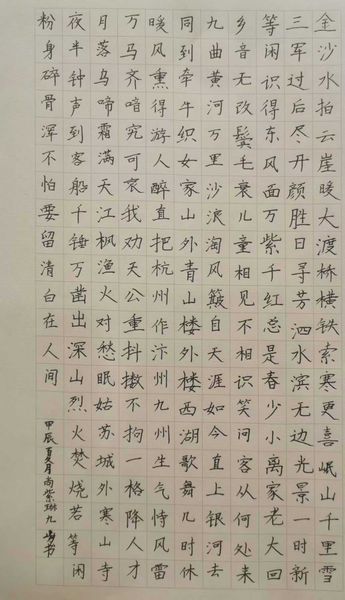 金沙水拍云崖暖大渡桥横铁索寒更喜岷山千里雪
三军过后尽开颜胜日寻芳泗水滨无边光景一时新
等闲识得东风面万紫千红总是春少小离家老大回
乡音无改鬓毛衰儿童相见不相识笑问客从何处来
九曲黄河万里沙浪淘风簸自天涯如今直上银河去
同到牵牛织女家山外青山楼外楼西湖歌舞几时休
暖风熏得游人醉直把杭州作汴州九州生气恃风雷
万马齐喑究可哀我劝天公重抖擞不拘一格降人才
月落乌啼霜满天江枫渔火对愁眠姑苏城外寒山寺
夜半钟声到客船千锤万凿出深山烈火焚烧若等闲
粉身碎骨浑不怕要留清白在人间
甲辰夏月尚紫琳九岁书